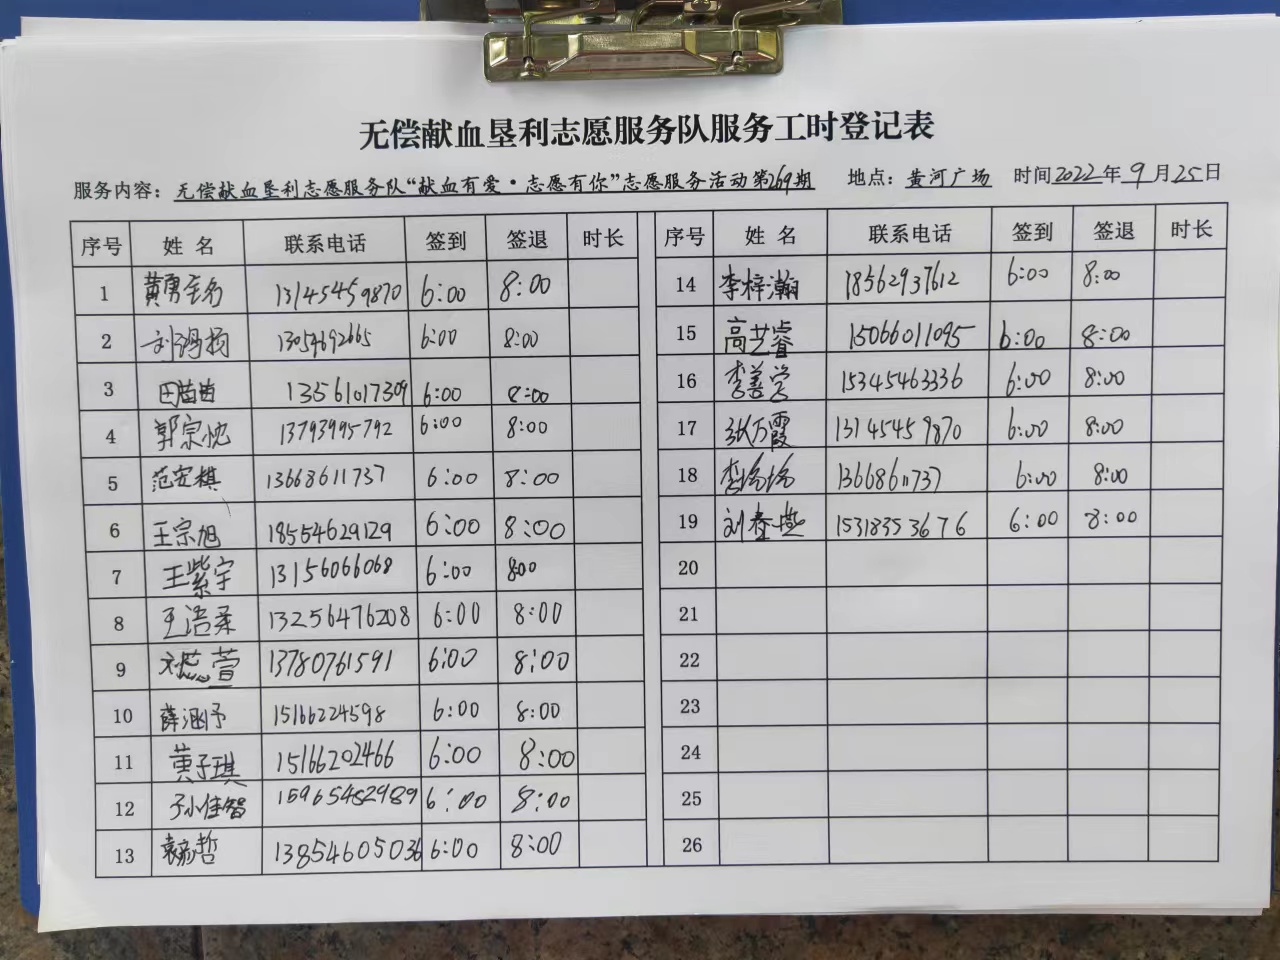 无偿献血垦利志愿服务队服务工时登记表
服务内容：无偿献血垦利志愿服务队“献血有爱·志愿有你”志愿服务活动第269期 地点：黄河广场 时间2022年9月25日
序号 姓名 联系电话 签到 签退 时长 序号 姓名 联系电话 签到 签退 时长
1 13145459870 6:00 8:00 14 李梓瀚 18562937612 6:00 8:00
2 6:00 8:00 15 高艺睿 15066011095 6:00 8:00
3 田苗苗 13561017309 6:00 8:00 16 李善学 15345463336 6:00 8:00
4 郭宗忱 13793995792 6:00 8:00 17 张万霞 13145459870 6:00 8:00
5 范安棋 13668611737 6:00 8:00 18 13668611737 6:00 8:00
6 王宗旭 18554629129 6:00 8:00 19 刘春燕 15318353676 6:00 8:00
7 王紫宇 13156066068 6:00 8:00 20
8 王浩柔 13256476208 6:00 8:00 21
9 13780761591 6:00 8:00 22
10 薛涵予 15166224598 6:00 8:00 23
11 黄子琪 15166202466 6:00 8:00 24
12 孙佳智 15965482989 6:00 8:00 25
13 13854605036 6:00 8:00 26